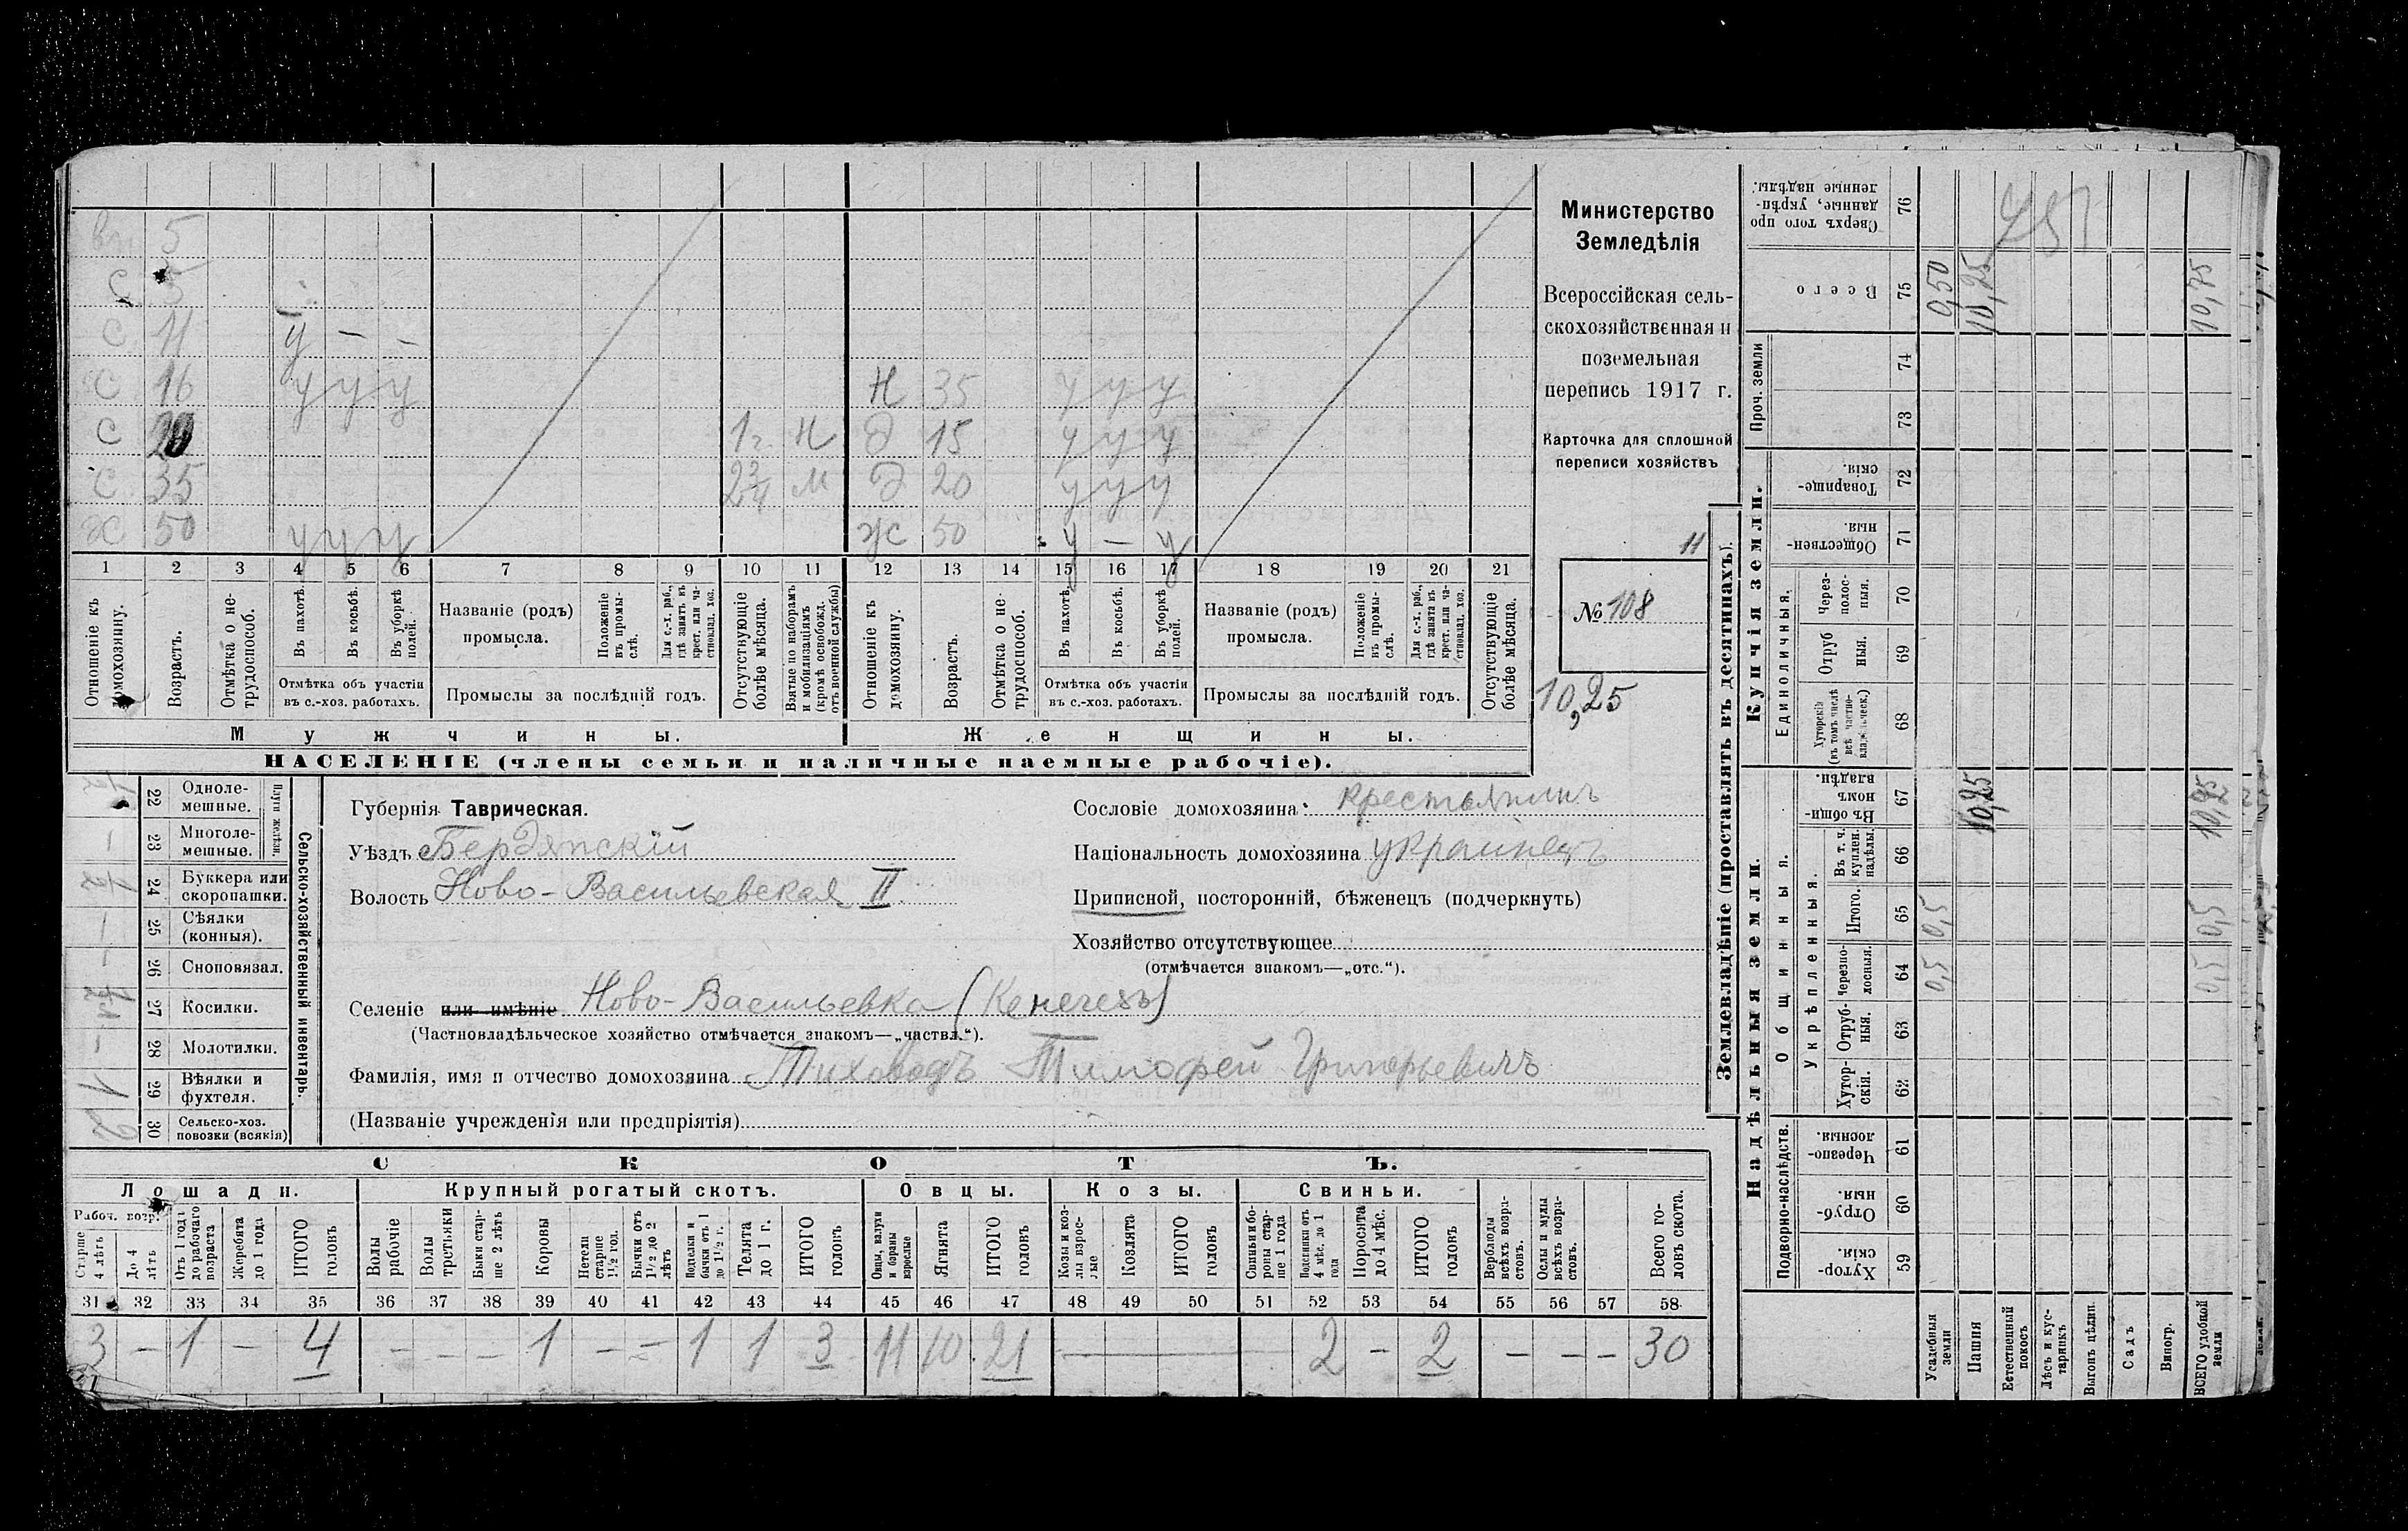 Министерство
Земледѣлія
Всероссійская сель-
скохозяйственная и
поземельная
перепись 1917 г.
Карточка для сплошной
переписи хозяйствъ
11
№ 108
10,25
5
С 5
С 11 у — —
С 16 у у у Н 35 у у у
С 20 1 г. Н Д 15 у у у
С 35 2 3/4 М Д 20 у у у
Ж 50 у у у Ж 50 у — у
1 2 3 4 5 6 7 8 9 10 11 12 13 14 15 16 17 18 19 20 21
Отношеніе къ домохозяину.
Возрастъ.
Отмѣтка о не-трудоспособ.
Въ пахотѣ.
Въ косьбѣ.
Въ уборкѣ полей.
Отмѣтка объ участіи
въ с.-хоз. работахъ.
Названіе (родъ)
промысла.
Положеніе въ промы-слѣ.
Для с.-х. раб., гдѣ занятъ въ крест. или ча-стновлад. хоз.
Промыслы за послѣдній годъ.
Отсутствующіе болѣе мѣсяца.
Взятые по наборамъ и мобилизаціямъ (кромѣ освобожд. отъ военной службы)
Отношеніе къ домохозяину.
Возрастъ.
Отмѣтка о не-трудоспособ.
Въ пахотѣ.
Въ косьбѣ.
Въ уборкѣ полей.
Отмѣтка объ участіи
въ с.-хоз. работахъ.
Названіе (родъ)
промысла.
Положеніе въ промы-слѣ.
Для с.-х. раб., гдѣ занята въ крест. или ча-стновлад. хоз.
Промыслы за послѣдній годъ.
Отсутствующіе болѣе мѣсяца.
Мужчины.
Женщины.
НАСЕЛЕНІЕ (члены семьи и наличные наемные рабочіе).
Губернія Таврическая.
Уѣздъ Бердянскій
Волость Ново-Васильевская II
Сословіе домохозяина: крестьянинъ
Національность домохозяина украинецъ
Приписной, посторонній, бѣженецъ (подчеркнуть)
Хозяйство отсутствующее
(отмѣчается знакомъ—„отс.“).
Селеніе или имѣніе Ново-Васильевка (Кенегезъ)
(Частновладѣльческое хозяйство отмѣчается знакомъ—„частвл.“).
Фамилія, имя и отчество домохозяина Тиховодъ Тимофей Григорьевичъ
(Названіе учрежденія или предпріятія)
Сельско-хозяйственный инвентарь.
Плуги желѣзн.
22 Одноле-мешные.
— 23 Многоле-мешные.
24 Буккера или скоропашки.
— 25 Сѣялки (конныя).
— 26 Сноповязал.
27 Косилки.
— 28 Молотилки.
1 29 Вѣялки и фухтеля.
2 30 Сельско-хоз. повозки (всякія)
СКОТЪ.
Лошади.
Крупный рогатый скотъ.
Овцы.
Козы.
Свиньи.
Рабоч. возр.
Старше 4 лѣтъ
До 4 лѣтъ
Отъ 1 года до рабочаго возраста
Жеребята до 1 года
ИТОГО головъ
Волы рабочіе
Волы третьяки
Быки стар-ше 2 лѣтъ
Коровы
Нетели старше 1 1/2 год.
Бычки отъ 1 1/2 до 2 лѣтъ
Подтелки и бычки отъ 1 до 1 1/2 г.
Телята до 1 г.
ИТОГО головъ
Овцы, валухи и бараны взрослые
Ягнята
ИТОГО головъ
Козы и коз-лы взрос-лые
Козлята
ИТОГО головъ
Свиньи и бо-ровы стар-ше 1 года
Подсвинки отъ 4 мѣс. до 1 года
Поросята до 4 мѣс.
ИТОГО головъ
Верблюды всѣхъ возра-стовъ.
Ослы и мулы всѣхъ возра-стовъ.
Всего го-ловъ скота.
31 32 33 34 35 36 37 38 39 40 41 42 43 44 45 46 47 48 49 50 51 52 53 54 55 56 57 58
3 — 1 — 4 — — — 1 — — 1 1 3 11 10 21 — 2 — 2 — — — 30
Землевладѣніе (проставлять въ десятинахъ).
Надѣльныя земли.
Купчія земли.
Подворно-наслѣдств.
Общинныя.
Укрѣпленныя.
Единоличныя.
Проч. земли
59 Хутор-скія.
60 Отруб-ныя.
61 Черезпо-лосныя.
62 Хутор-скія.
63 Отруб-ныя.
64 Черезпо-лосныя.
65 Итого.
66 Въ т. ч. куплен. надѣлы.
67 Въ общи-номъ владѣн.
68 Хуторскія (въ томъ числѣ всѣ частно-владѣльческ.)
69 Отруб ныя.
70 Через-полос-ныя.
71 Обществен-ныя.
72 Товарище-скія.
73
74
75 Всего
76 Сверхъ того про данные, укрѣп-ленные надѣлы.
Усадебныя земли 0,5 0,5 0,50
Пашня 10,25 10,25
Естественный покосъ
Лѣсъ и кус-тарникъ
Выгонъ цѣлин.
Садъ
Виногр.
ВСЕГО удобной земли 0,5 0,5 10,25 10,75